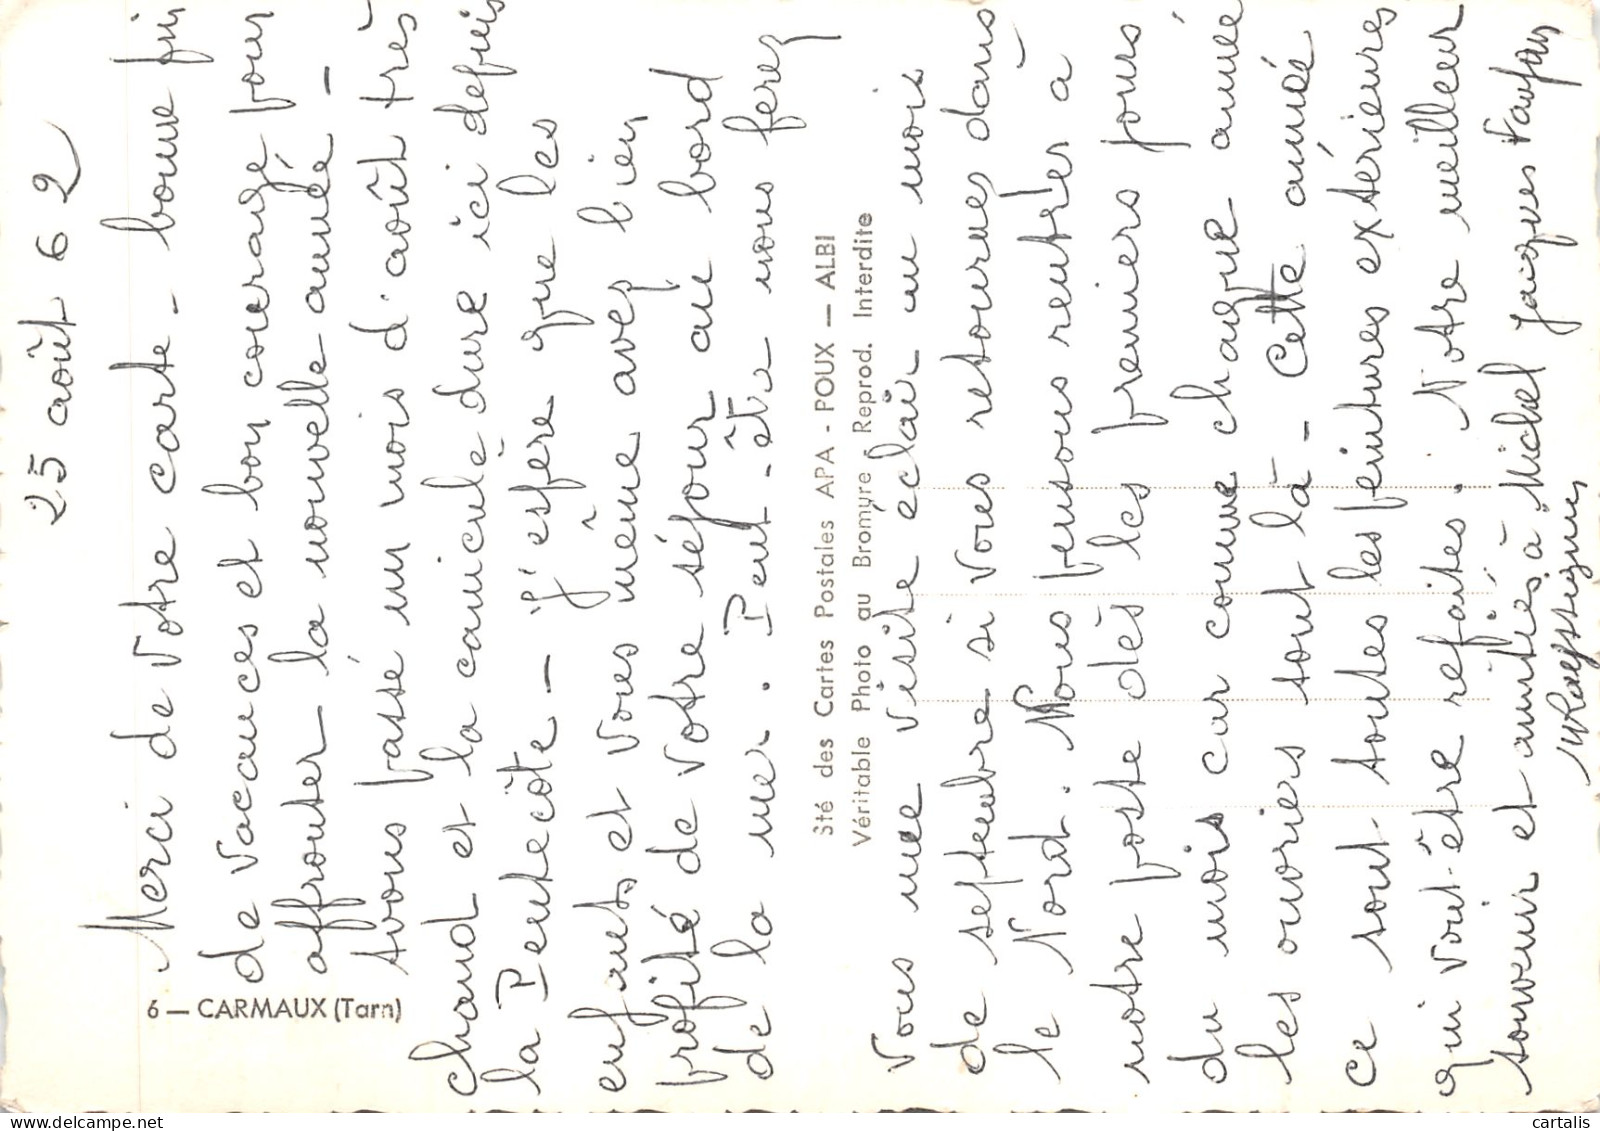 25 août 62
Merci de Votre carte - bonne fin
de vacances et bon courage pour
affronter la nouvelle année -
Avons passé un mois d'août très
chaud et la canicule dure ici depuis
la Pentecôte - J'espère que les
enfants et Vous même avez bien
profité de Votre séjour au bord
de la mer. Peut-être nous ferez
6 — CARMAUX (Tarn)
Sté des Cartes Postales APA - POUX — ALBI
Véritable Photo au Bromure Reprod. Interdite
Vous une visite éclair au mois
de septembre si Vous retournez dans
le Nord. Nous pensons rentrer à
notre poste dès les premiers jours
du mois car comme chaque année
les ouvriers sont là - Cette année
ce sont toutes les peintures extérieures
qui vont être refaites. Notre meilleur
souvenir et amitiés à Michel Jacques
cartalis